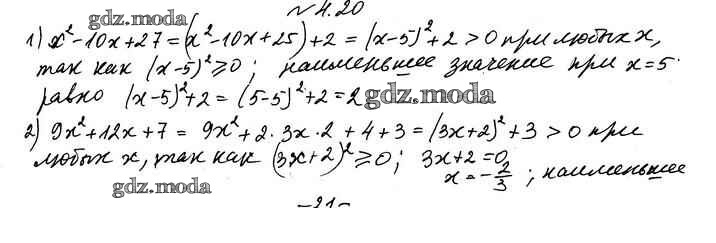 №4.20
gdz.moda
1) x²-10x+27=(x²-10x+25)+2=(x-5)²+2>0 при любых x,
так как (x-5)²⩾0; наименьшее значение при x=5
равно (x-5)²+2=(5-5)²+2=2 gdz.moda
2) 9x²+12x+7=9x²+2·3x·2+4+3=(3x+2)²+3>0 при
любых x, так как (3x+2)²⩾0; 3x+2=0
gdz.moda x=-2/3; наименьшее
-21-